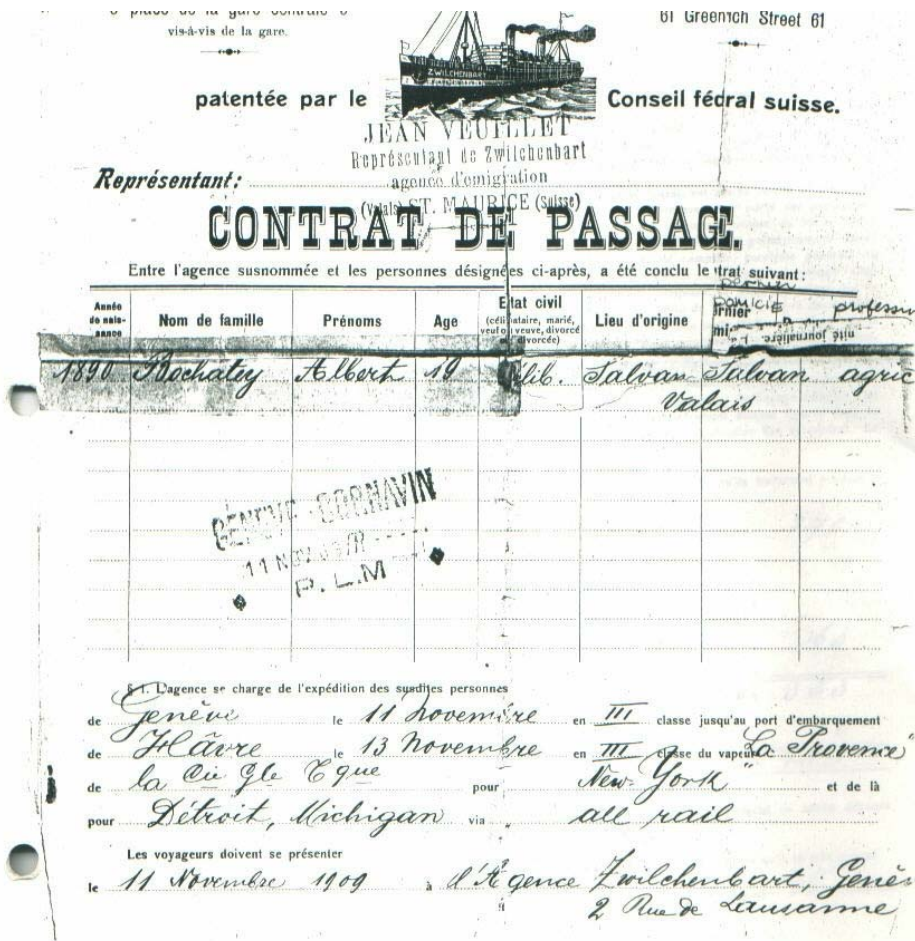 place de la gare centrale
vis-à-vis de la gare.
61 Greenwich Street 61
ZWILCHENBART
patentée par le Conseil fédral suisse.
JEAN VEUILLET
Représentant de Zwilchenbart
agence d'emigration
(Valais) ST. MAURICE (Suisse)
Représentant:
CONTRAT DE PASSAGE.
Entre l'agence susnommée et les personnes désignées ci-après, a été conclu le trat suivant:
Année de naissance Nom de famille Prénoms Age Etat civil (célibataire, marié, veuf ou veuve, divorcé ou divorcée) Lieu d'origine dernier DOMICIE profession
1890 Bochatey Albert 19 Célib. Salvan Salvan agric
Valais
GENÈVE-CORNAVIN
11 NOV
P.L.M
§ 1. L'agence se charge de l'expédition des susdites personnes
de Genève le 11 Novembre en III classe jusqu'au port d'embarquement
de Hâvre le 13 Novembre en III classe du vapeur "La Provence"
de la Cie Gle Tque pour New-York et de là
pour Détroit, Michigan via all rail
Les voyageurs doivent se présenter
le 11 Novembre 1909 à l'Agence Zwilchenbart, Genèv
2 Rue de Lausanne